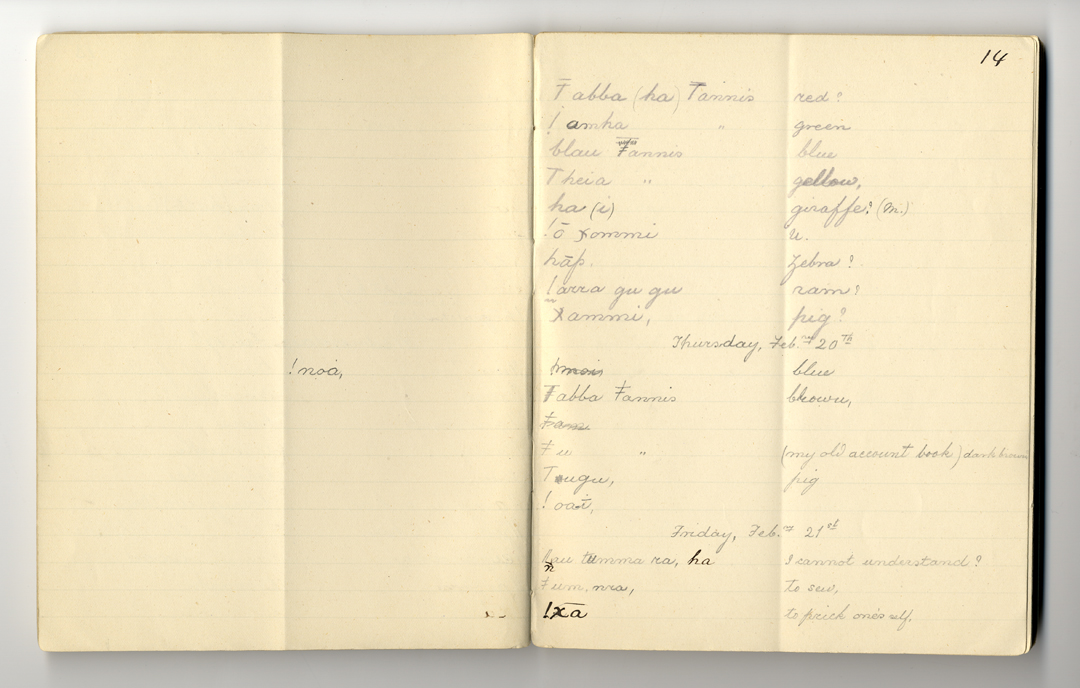 14
Ŧabba (ha) Ŧannis red?
! amha " green
blau Ŧannis blue
Theia " yellow,
ha (i) giraffe? (m.)
!ō xommi u.
hāp. zebra?
!arra gu gu ram?
xammi, pig?
Thursday, Feb.ry 20th
!noá,
blue
Ŧabba Ŧannis brown,
Ŧam
Ŧu " (my old account book) dark brown
Tougu, pig
!oaī,
Friday, Feb.ry 21st
tumma ra, ha I cannot understand?
Ŧum. nra, to sew,
!xā to prick one's self.